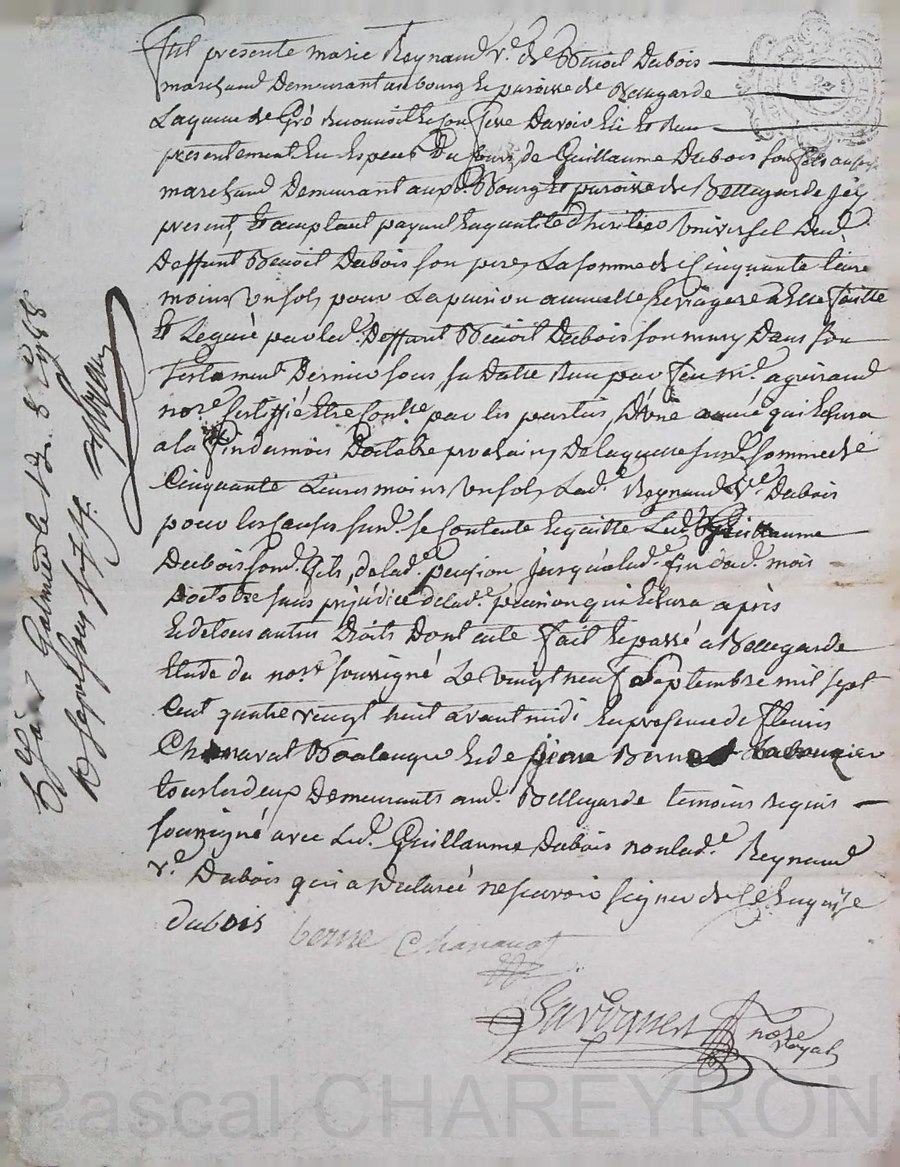 Fut présente marie Reynaud v.e de Benoit Dubois
marchand Demeurant au bourg et paroisse de Bellegarde
Laquelle de Gré Reconnoit et confesse Davoir Eu et Reçu
présentement En Espèces Du cours de Guillaume Dubois son fils aussy
marchand Demeurant aux d. Bourg et paroisse de Bellegarde jcy
présent, Et acceptant payant En qualité d'héritier Universel dud.
Deffunt Benoit Dubois son père, La somme de Cinquante livres
moins un sols, pour La pension annuelle et viagere a Elle faitte
Et Leguée par led. Deffunt Benoit Dubois son mary Dans son
Testament Dernier sous sa Datte Reçu par feu m.e aguiraud
no.re Certiffié Etre Contr.e par les parties, D'une année qui Echera
a la fin du mois D'octobre prochain, De laquelle susd. somme de
Cinquante Livres moins un sols, Lad. Reynaud V.e Dubois
pour les causes susd. se contente Et quitte Led. Guillaume
Dubois sond. fils, de lad. pension jusqu'a lad. fin dud. mois
D'octobre sans préjudice de lad.e pension qui Echera après
Et de tous autres Droits Dont acte fait Et passé a Bellegarde
Etude du no.re soussigné Le vingt neuf Septembre mil sept
Cent quatre vingt huit avant midi En présence de fleuris
Chanavat Boulenger Et de pierre Berne Laboureur
tous les deux Demeurants aud. Bellegarde temoins Requis
soussigné avec Led. Guillaume Dubois non lad.e Reynaud
v.e Dubois qui a Déclaré ne sçavoir signer de ce Enquise
dubois berne Chanavat
no.re
Royal
a Galmier le 1788
Pascal CHAREYRON